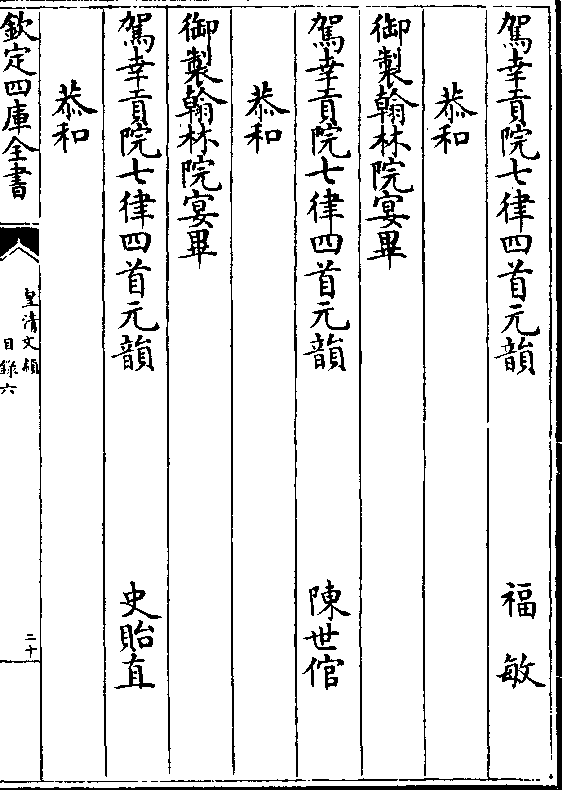 駕幸貢院七律四首元韻　福敏
恭和
御製翰林院宴畢
駕幸貢院七律四首元韻　陳世倌
恭和
御製翰林院宴畢
駕幸貢院七律四首元韻　史貽直
恭和
欽定四庫全書
皇清文穎
目錄六
二十